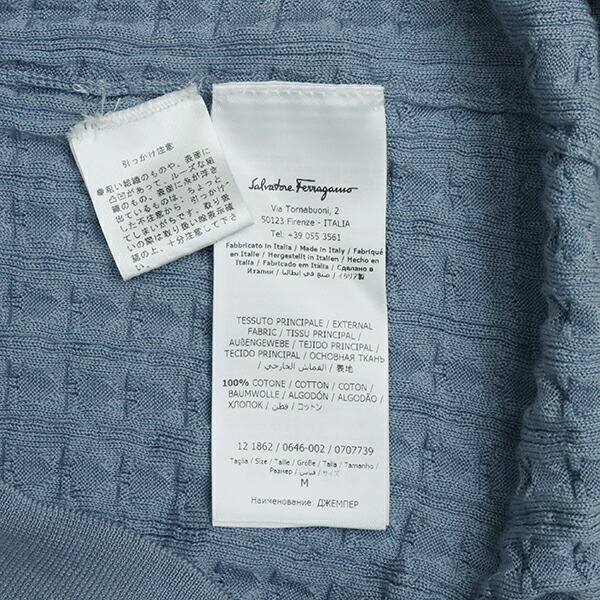 引っかけ注意
●粗い組織のものや、表面に
凸凹があって、ルーズな組
織のもの、表面に糸が浮き
出ているものは、ちょっと
した不注意から、引っかけ
てしまいがちです。取り扱
いの際は取り扱い絵表示確
認の上、十分注意して下さ
い。
Salvatore Ferragamo
Via Tornabuoni, 2
50123 Firenze - ITALIA
Tel: +39 055 3561
Fabbricato in Italia / Made in Italy / Fabriqué
en Italie / Hergestellt in Italien / Hecho en
Italia / Fabricado em Itália / Сделано в
Италии / صنع في ايطاليا / イタリア製
TESSUTO PRINCIPALE / EXTERNAL
FABRIC / TISSU PRINCIPAL /
AUßENGEWEBE / TEJIDO PRINCIPAL /
TECIDO PRINCIPAL / ОСНОВНАЯ ТКАНЬ
/ القماش الخارجي / 表地
100% COTONE / COTTON / COTON /
BAUMWOLLE / ALGODÓN / ALGODÃO /
ХЛОПОК / قطن / コットン
12 1862 / 0646-002 / 0707739
Taglia / Size / Taille / Größe / Talla / Tamanho /
Размер / قياس / サイズ
M
Наименование: ДЖЕМПЕР